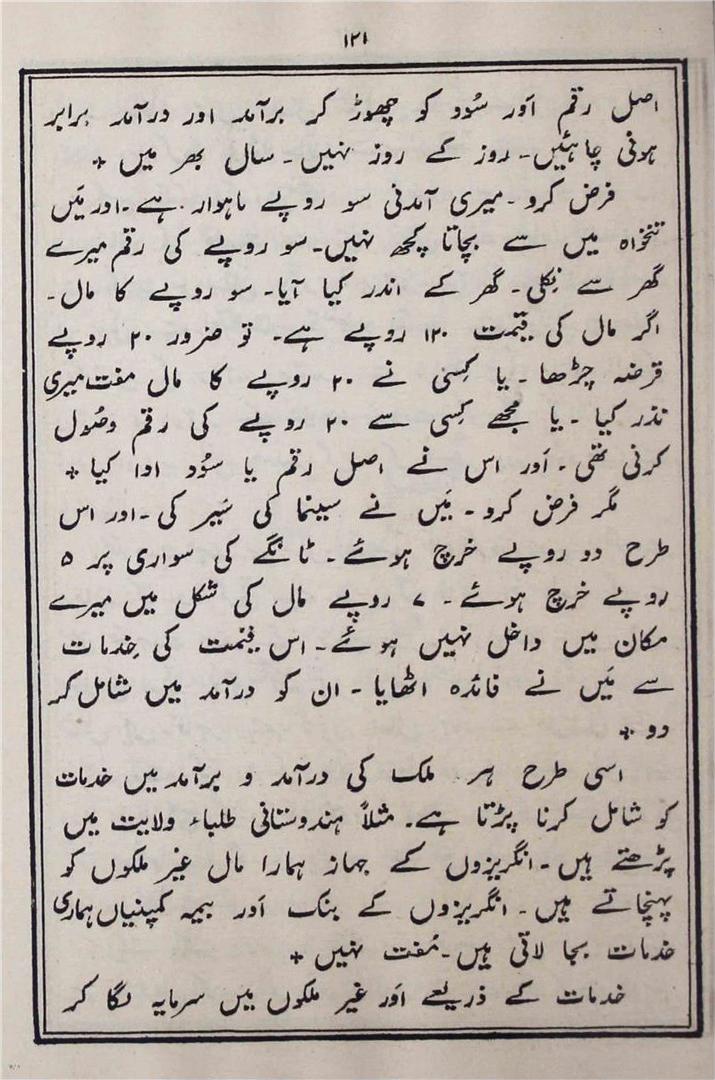 ۱۲۱
اصل رقم اَور سُود کو چھوڑ کر برآمد اور درآمد برابر
ہونی چاہئیں۔ روز کے روز نہیں۔ سال بھر میں +
فرض کرو۔ میری آمدنی سو روپے ماہوار ہے۔ اور مَیں
تنخواہ میں سے بچاتا کچھ نہیں۔ سو روپے کی رقم میرے
گھر سے نِکلی۔ گھر کے اندر کیا آیا۔ سو روپے کا مال۔
اگر مال کی قیمت ۱۲۰ روپے ہے۔ تو ضرور ۲۰ روپے
قرضہ چڑھا۔ یا کِسی نے ۲۰ روپے کا مال مفت میری
نذر کیا۔ یا مجھے کِسی سے ۲۰ روپے کی رقم وصُول
کرنی تھی۔ اَور اس نے اصل رقم یا سُود ادا کیا +
مگر فرض کرو۔ مَیں نے سینما کی سَیر کی۔ اور اس
طرح دو روپے خرچ ہوئے۔ ٹانگے کی سواری پر ۵
روپے خرچ ہوئے۔ ۷ روپے مال کی شکل میں میرے
مکان میں داخل نہیں ہوئے۔ اس قیمت کی خِدمات
سے مَیں نے فائدہ اٹھایا۔ ان کو درآمد میں شامل کر
دو +
اسی طرح ہر ملک کی درآمد و برآمد میں خدمات
کو شامل کرنا پڑتا ہے۔ مثلاً ہندوستانی طلباء ولایت میں
پڑھتے ہیں۔ انگریزوں کے جہاز ہمارا مال غیر ملکوں کو
پہنچاتے ہیں۔ انگریزوں کے بنک اَور بیمہ کمپنیاں ہماری
خدمات بجا لاتی ہیں۔ مُفت نہیں +
خدمات کے ذریعے اَور غیر ملکوں میں سرمایہ لگا کر